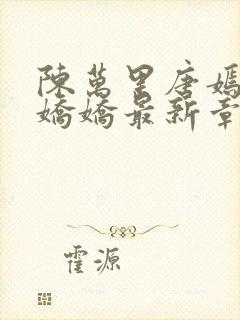 陳萬里唐嫣
嬌嬌最新章
霍源